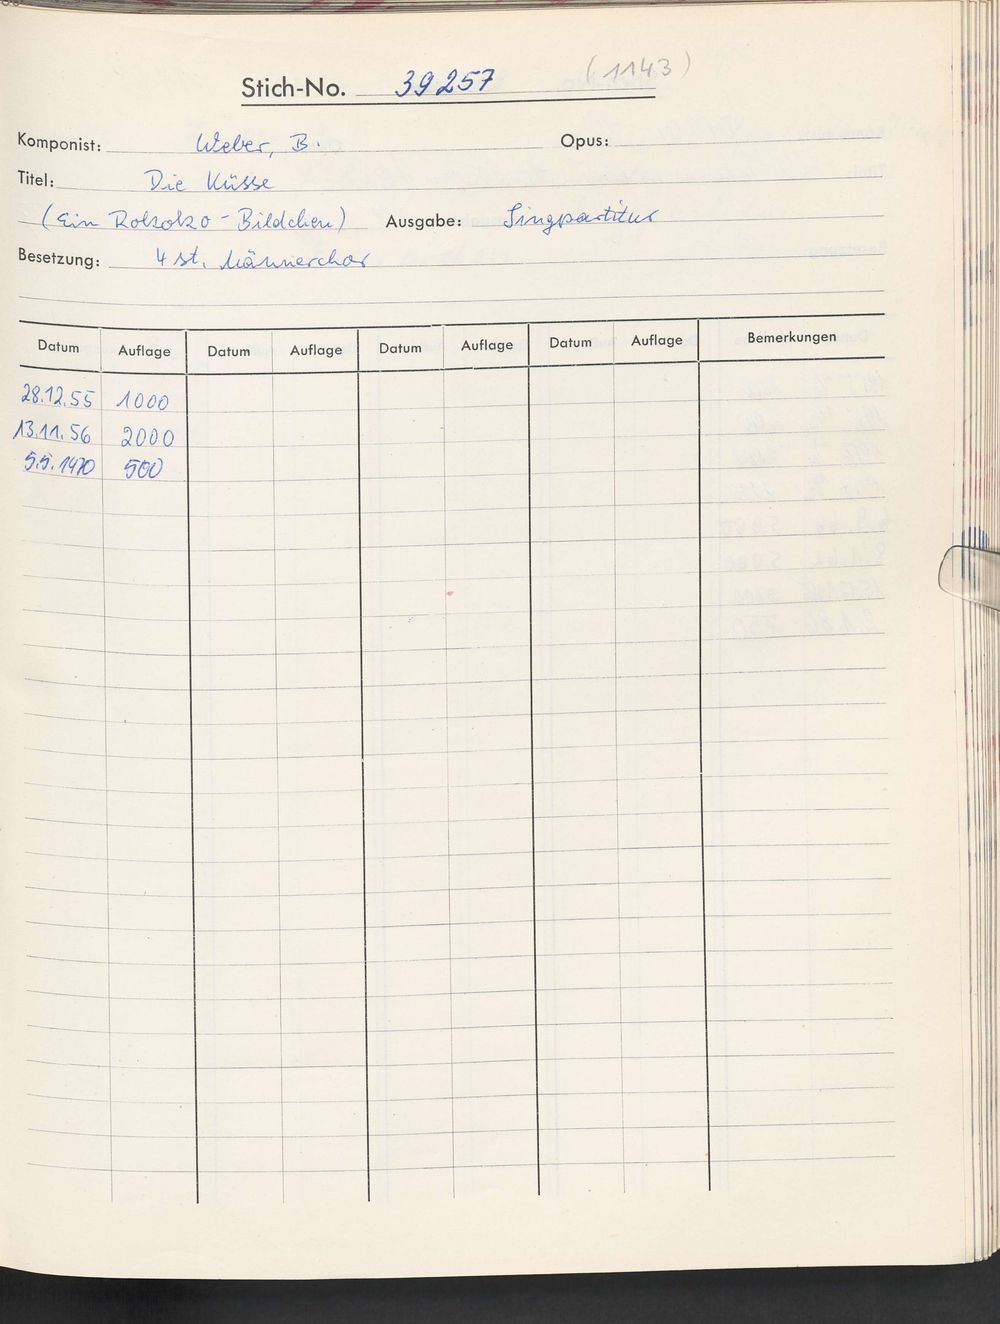 Stich-No. 39257 (1143)
Komponist: Weber, B. Opus:
Titel: Die Küsse
(Ein Rokoko-Bildchen) Ausgabe: Singpartitur
Besetzung: 4 st. Männerchor
Datum Auflage Datum Auflage Datum Auflage Datum Auflage Bemerkungen
28.12.55 1000
13.11.56 2000
5.5.1970 500